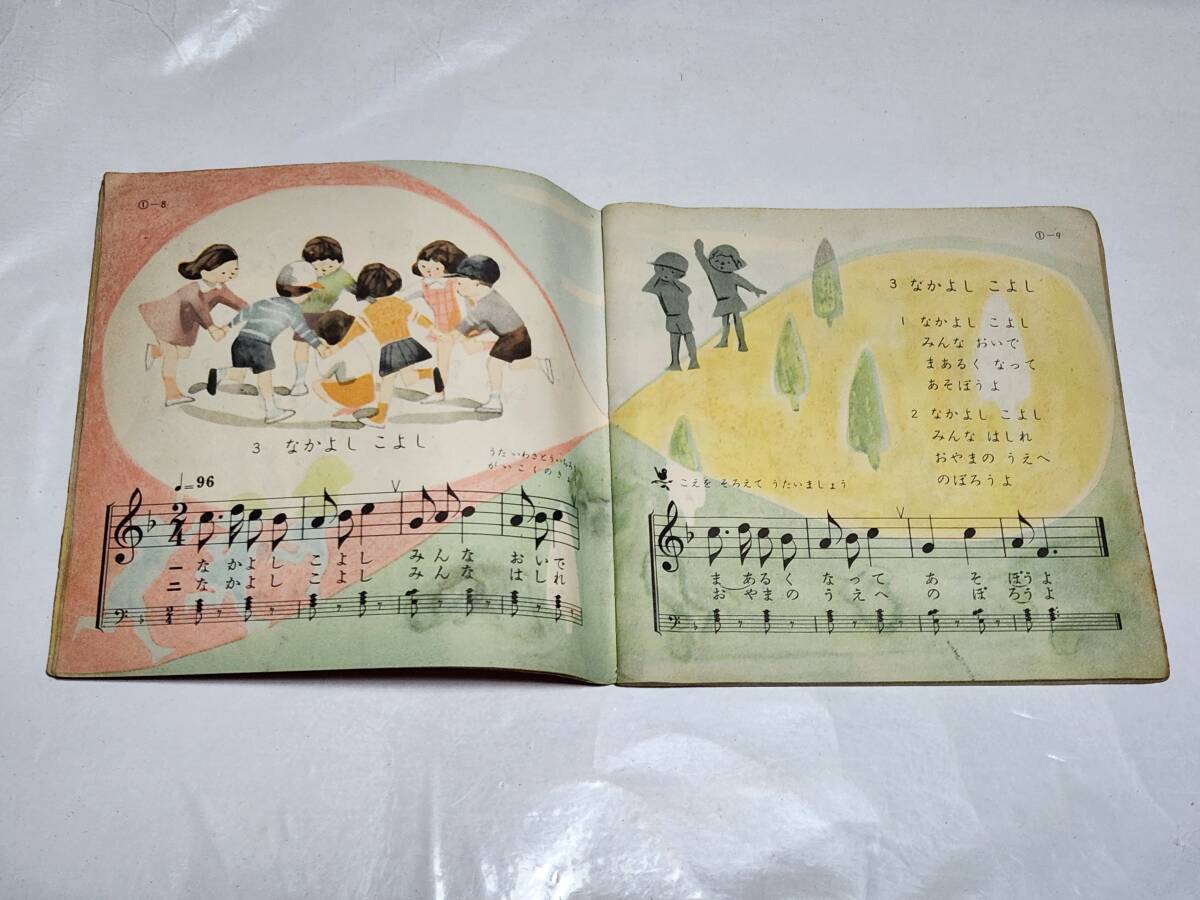 ①-8
3 なかよし こよし
うた いわさとういちろう
がいこくのきょく
♩=96
一 なかよし こよし みんな おいで
二 なかよし こよし みんな はしれ
①-9
3 なかよし こよし
1 なかよし こよし
みんな おいで
まあるく なって
あそぼうよ
2 なかよし こよし
みんな はしれ
おやまの うえへ
のぼろうよ
こえを そろえて うたいましょう
まあるく なって あそ ぼうよ
おやまの うえへ のぼ ろうよ